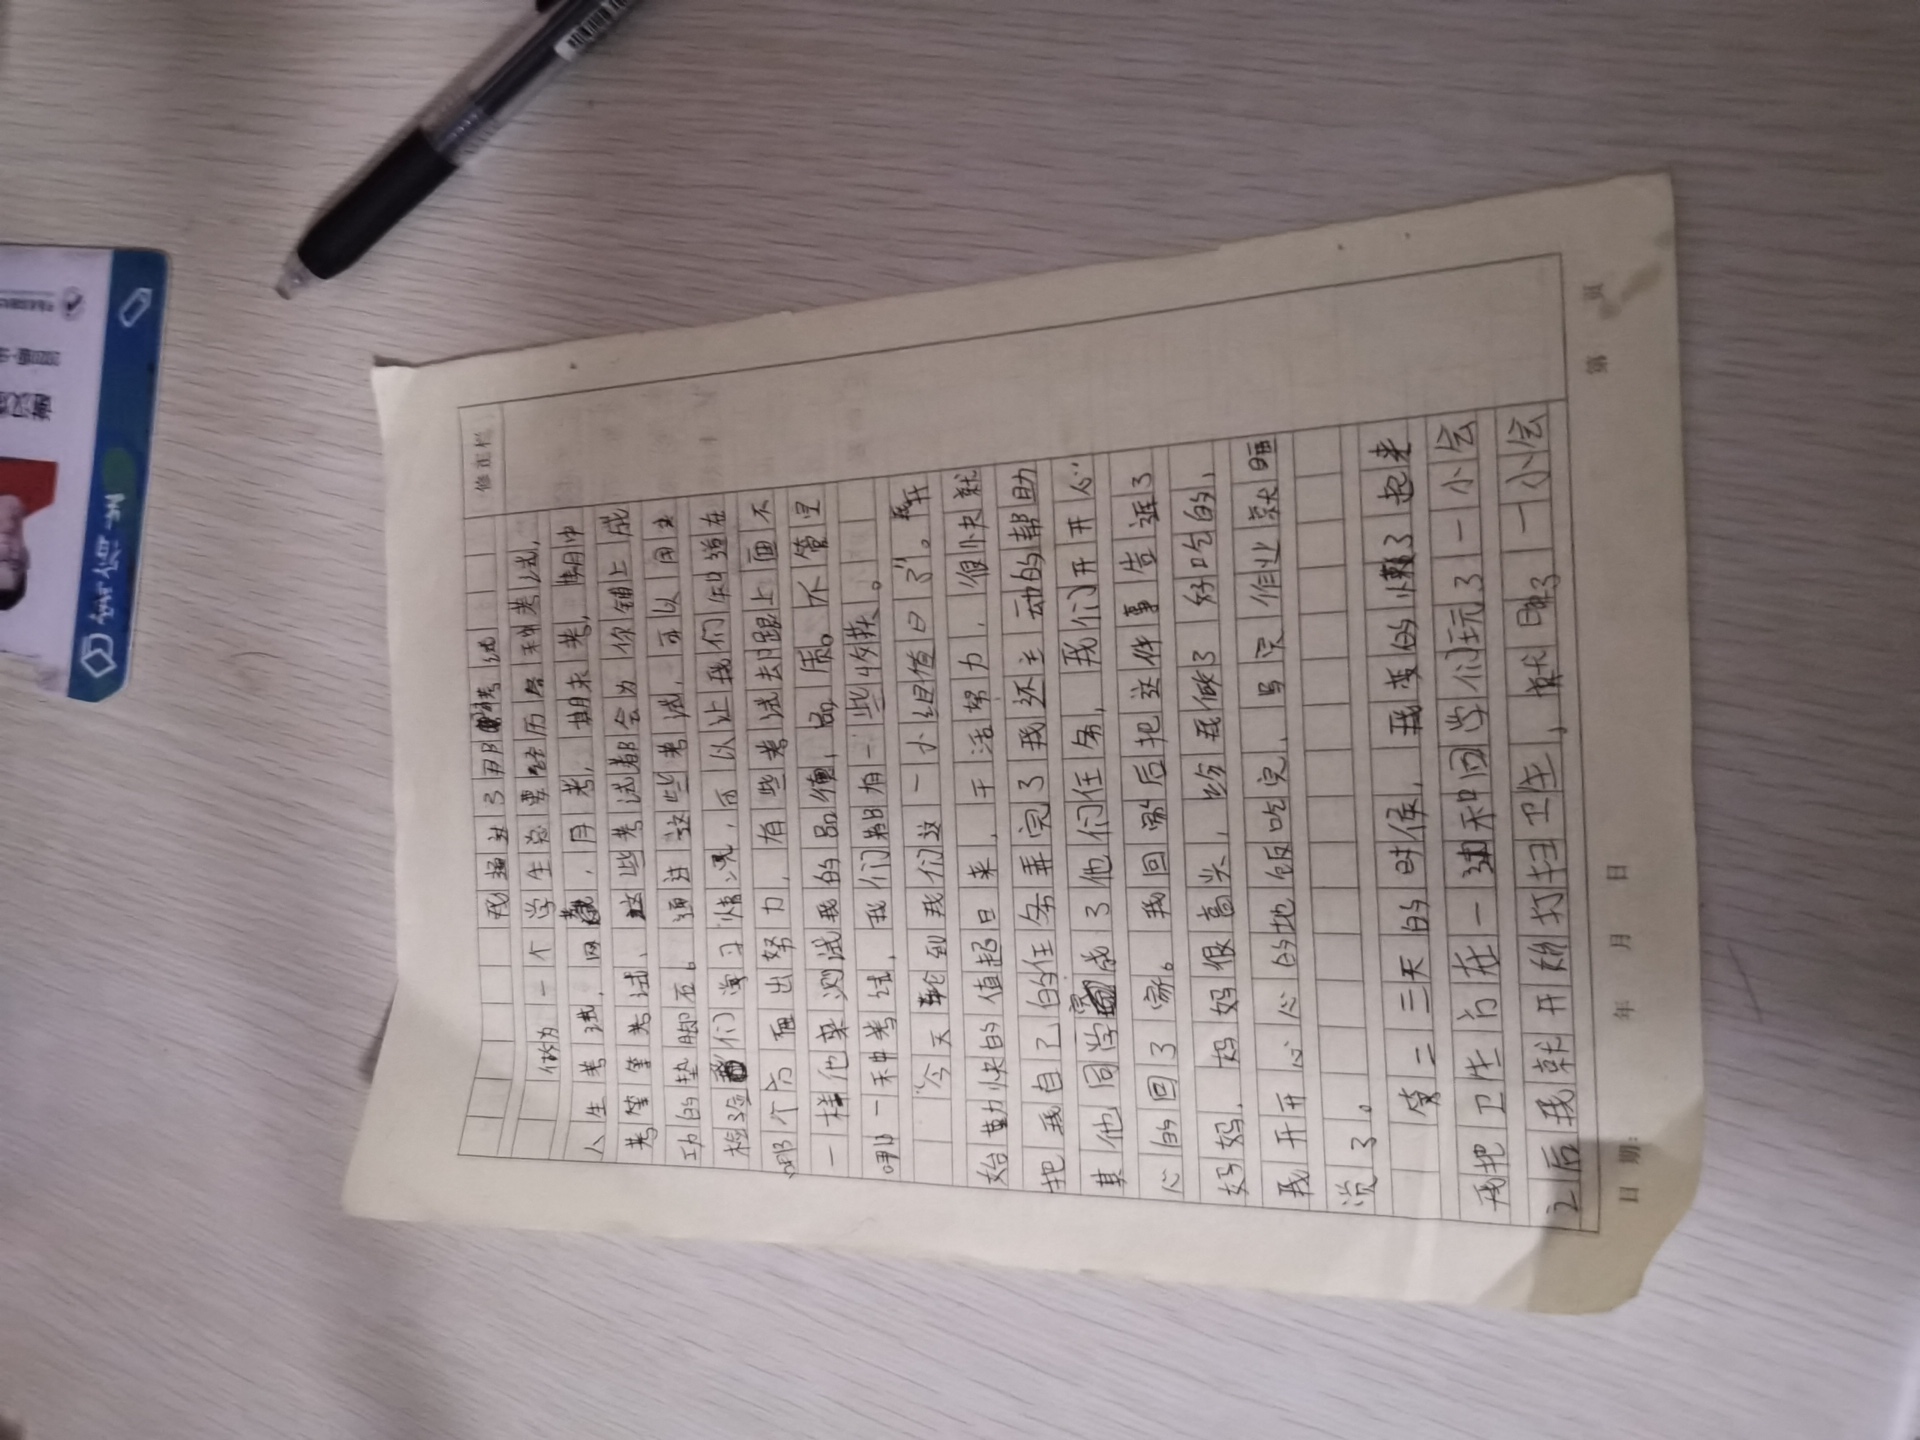 修正栏
我输了那场考试
做为一个学生总要经历各种考试,
人生考试,网考,月考,期末考,期中
考等等考试、这些考试都会为你铺上成
功的垫脚石。通过这些考试,可以用来
检验我们学习情况,可以让我们知道在
哪个方面出努力,有些考试去跟上面不
一样他来测试我的品德,品质。不管是
哪一种考试,我们都有一些收获。
"今天轮到我们这一小组值日了"。我开
始勤快的值起日来,干活努力,很快就
把我自己的任务弄完了我还主动的帮助
其他同学完成了他们任务,我们开开心
心的回了家。我回家后把这件事告诉了
妈妈,妈妈很高兴,给我做了好吃的,
我开开心心的地饭吃完,写完作业就睡
觉了。
第二三天的时候,我变的懒了起来
我把卫生方在一边和同学们玩了一小会
之后我就开始打扫卫生,就玩了一小会
日期: 年 月 日
第 页